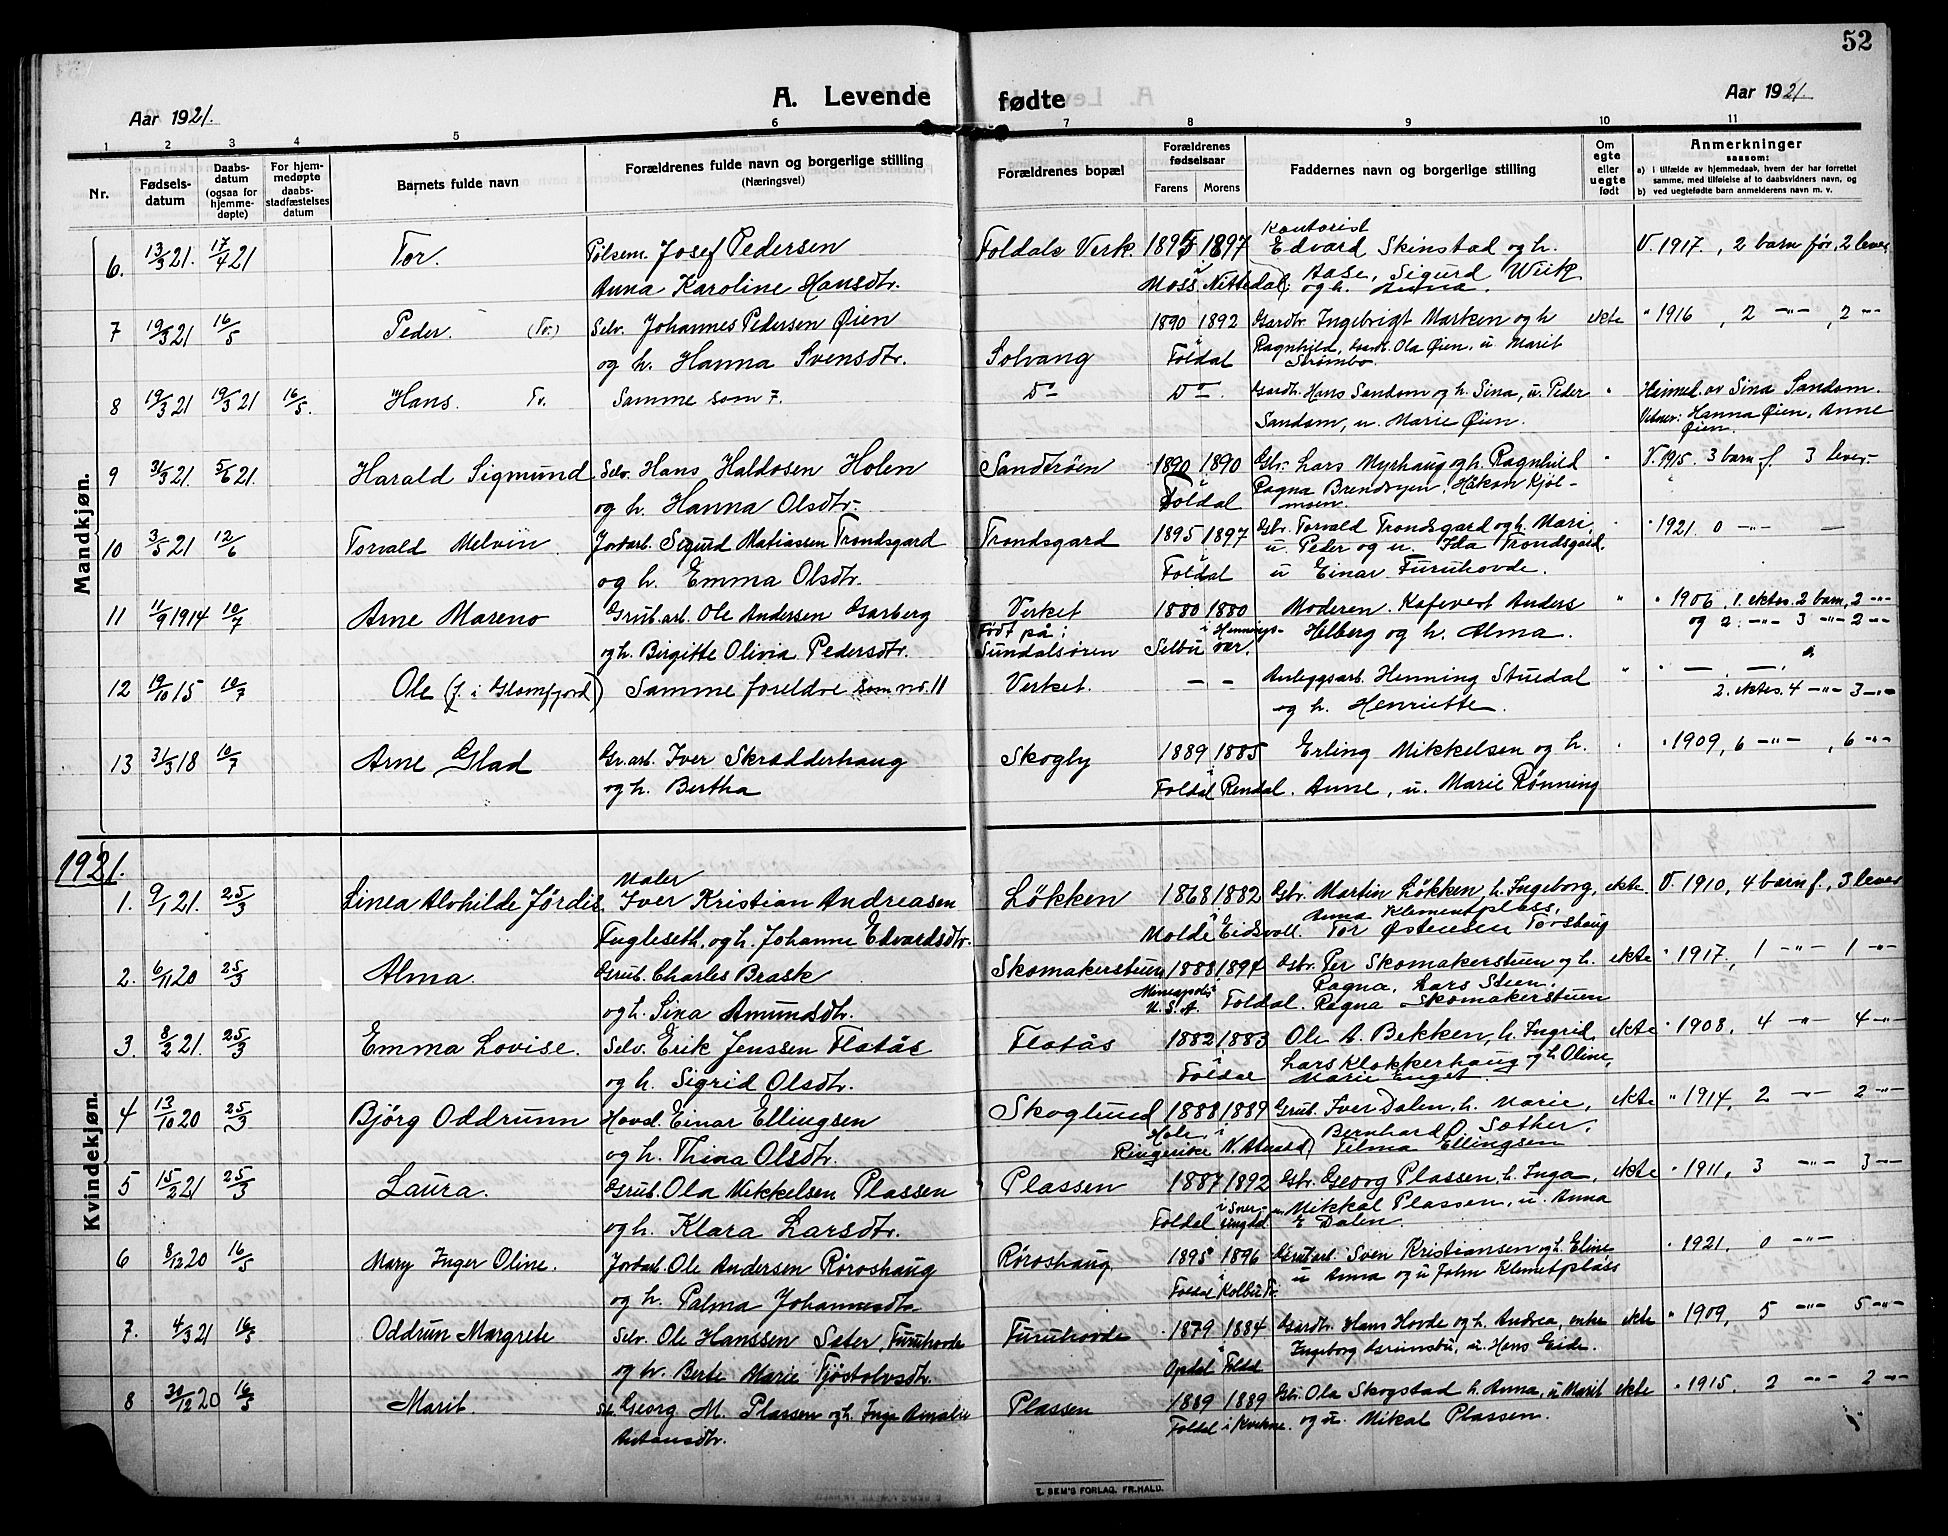 52
A. Levende fødte
Aar 1921.
Aar 1921.
1 2 3 4 5 6 7 8 9 10 11
Nr.
Fødsels-
datum
Daabs-
datum
(ogsaa for
hjemme-
døpte)
For hjem-
medøpte
daabs-
stadfæstelses
datum
Barnets fulde navn
Forældrenes fulde navn og borgerlige stilling
(Næringsvei)
Forældrenes bopæl
Forældrenes
fødselsaar
Farens Morens
Faddernes navn og borgerlige stilling
Om
egte
eller
uegte
født
Anmerkninger
saasom:
a) i tilfælde av hjemmedaab, hvem der har forrettet
samme, med tilføielse af to daabsvidners navn, og
b) ved uegtefødte barn anmelderens navn m. v.
Mandkjøn.
Kontorist
6. 13/3 21. 17/4 21 Tor. Pølsem. Josef Pedersen Foldals Verk. 1895 1897 Edvard Skinstad og h. V. 1917. , 2 barn før, 2 lever
Anna Karoline Hansdtr. Moss Nittedal. Aase, Sigurd Wiik og h. Anna.
7 19/3 21 16/5 Peder. (Tv.) Selv. Johannes Pedersen Øien 1890 1892 Gardbr. Ingebrigt Marken og h ekte " 1916 , 2 -"- , 2 -"-
og h. Hanna Svensdtr. Solvang Foldal Ragnhild, Ola Øien, u. Marit
Strømbo.
8 19/3 21 19/3 21 16/5. Hans. Tv. Samme som 7. Do Do. Gardbr. Hans Sandom og h. Sina, u. Peder " Heimed. av Sina Sandom.
Sandom, u. Marie Øien. Vitner: Hanna Øien, Anne
Øien.
9 31/3 21 5/6 21. Harald Sigmund Selv. Hans Haldosen Holen Sandtrøen 1890 1890 Gbr. Lars Myrhaug og h. Ragnhild " V. 1915. 3 barn f. 3 lever
og h. Hanna Olsdtr. Foldal Ragna Brendryen, Håkon Kjøl-
moen.
10 3/5 21 12/6 Torvald Melvin. Jordarb. Sigurd Matiassen Trondsgard Trondsgard 1895 1897 Gbr. Torvald Trondsgard og h. Mari " " 1921. 0 -"- —
og h. Emma Olsdtr. Foldal u. Peder og u. Ida Trondsgard.
u Einar Furuhovde.
11 11/9 1914 10/7 Arne Mareno Grub.arb. Ole Andersen Garberg Verket 1880 1880 Moderen. Kafevert Anders " " 1906, 1. ektes. 2 barn, 2 -"-
og h. Birgitte Olivia Pedersdtr. Født på: Sundalsøren Selbu i Hennings-vær. Helberg og h. Alma. og 2. -"- 3 -"- 2 -"-
12 19/10 15 10/7 Ole (f. i Glomfjord) Samme foreldre som nr. 11 Verket. — — Anleggsarb. Henning Stuedal " " — — .
og h. Henriette. 2. ektes. 4 -"- 3 -"-
13 31/3 18 10/7 Arne Glad Gr.arb. Iver Skrædderhaug Skogly 1889 1885 Erling Mikkelsen og h. " " 1909, 6 -"- , 6 -"-
og h. Bertha Foldal Rendal. Anne, u. Marie Rønning
1921.
Kvindekjøn.
Maler
1. 9/1 21. 25/3 Linea Alvhilde Jørdis. Iver Kristian Andreasen Løkken 1868 1882 Gbr. Martin Løkken, h. Ingeborg, ekte V. 1910, 4 barn f., 3 lever
Fugleseth, og h. Johanne Edvardsdtr. Molde Eidsvoll. Anna Klementplass,
Tor Østensen Torshaug
2. 6/11 20 25/3 Alma. Grub. Charles Brask Skomakerstuen 1888 1894 Gbr. Per Skomakerstuen og h. ekte " 1917, 1 -"- 1 -"-
og h. Sina Amundsdtr. Mineapolis U. S. A. Foldal. Ragna, Lars Steen.
Ragna Skomakerstuen
3. 8/2 21. 25/3 Emma Lovise. Selv. Erik Jenssen Flatås Flatås 1882 1883 Ole A. Bekken, h. Ingrid, ekte " 1908, 4 -"- 4 -"-
og h. Sigrid Olsdtr. Foldal Lars Klokkerhaug og h. Oline,
Marie Enget.
4 13/10 20 25/3 Bjørg Oddrunn Hovd. Einar Ellingsen Skoglund 1888 1889 Grub. Iver Dalen, h. Marie, ekte " 1914, 2 -"- 2 -"-
og h. Thina Olsdtr. Hole Ringerike i N. Aurdal Bernhard O. Sæther,
Tilma Ellingsen
5 15/2 21 25/3 Laura. Grub. Ola Mikkelsen Plassen Plassen 1887 1892 Gbr. Georg Plassen, h. Inga, ekte " 1911, 3 -"- 3 -"-
og h. Klara Larsdtr. Foldal i Sner-tingdal Mikkal Plassen, u. Anna
E Dalen.
6 8/12 20 16/5 Mary Inger Oline. Jordarb. Ole Andersen Røroshaug Røroshaug 1895 1896 Grubarb. Sven Kristiansen og h. Eline, " 1921, 0 -"-
og h. Palma Johannesdtr. Foldal Kolbu Tr. u Anna og u John Klemetplass
7. 4/3 21 16/5 Oddrun Margrete Selv. Ole Hanssen Sæter, Furuhovde Furuhovde 1879 1884 Gardbr. Hans Hovde og h. Andrea, enke ekte " 1909, 5 -"- 5 -"-
og h. Berte Marie Tjøstolvsdtr. Opdal Foldal Ingeborg Grimsbu, u. Hans Eide.
8 30/12 20 16/5 Marit. Se. Georg M. Plassen og h. Inga Amalie Plassen 1889 1889 Gbr. Ola Skogstad h. Anna, u. Marit ekte " 1915, 2 -"- 2 -"-
Antonsdtr. Foldal i Kvikne. og u. Mikal Plassen.
E. SEM'S FORLAG, FR.HALD.